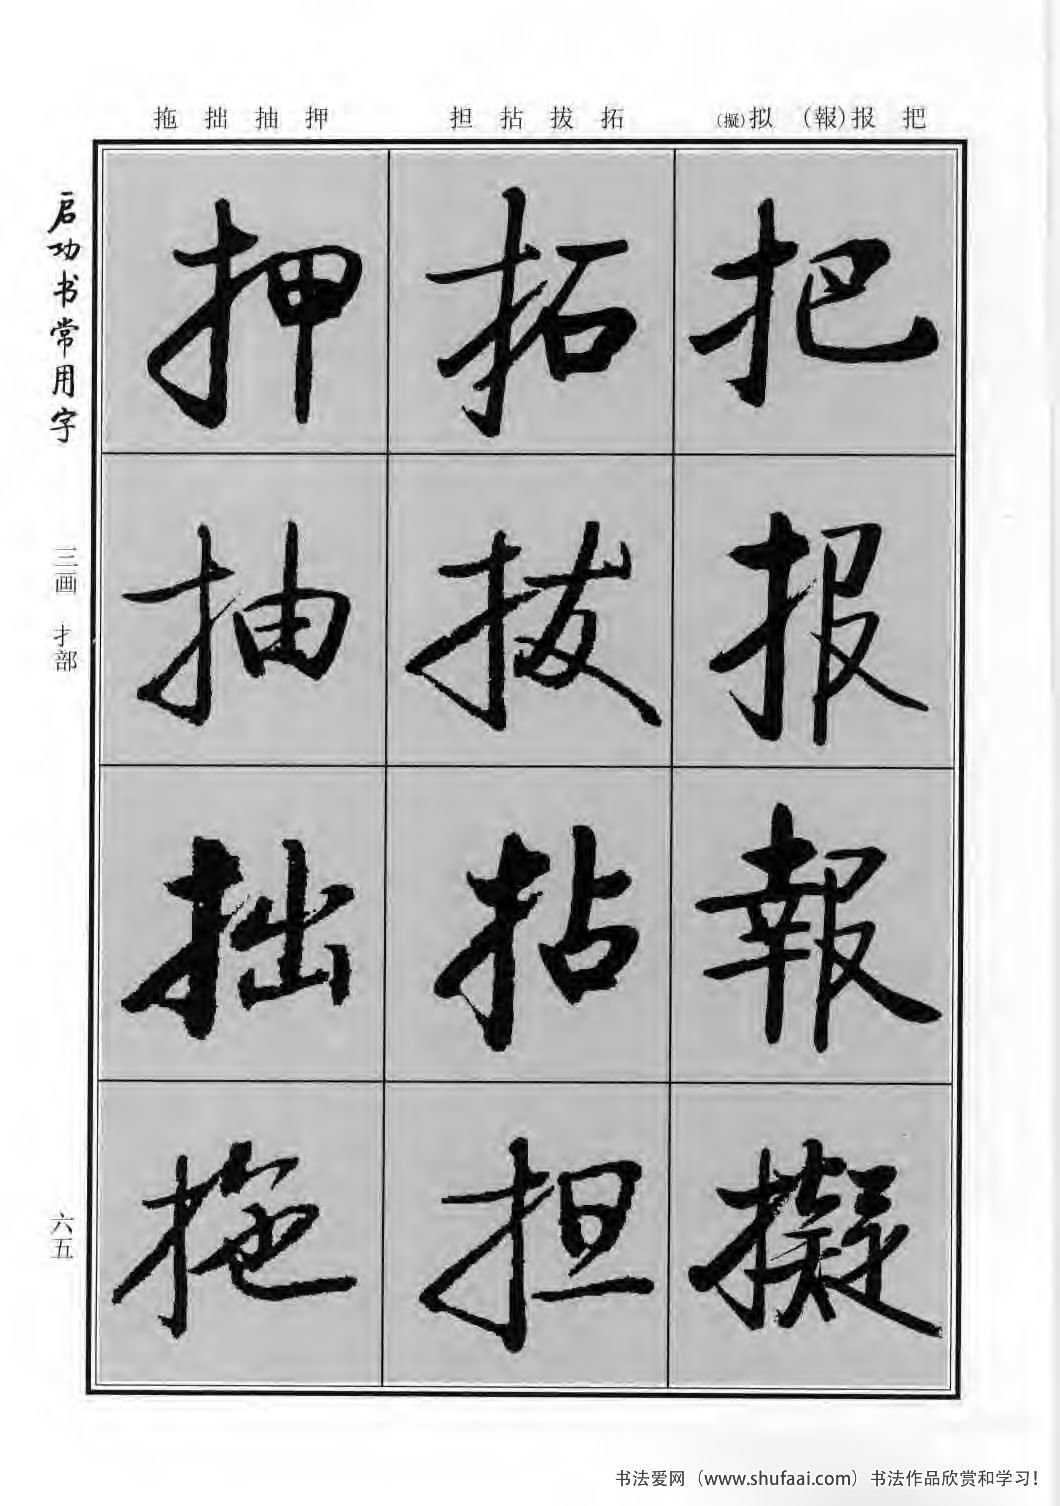 把 报(報) 拟(擬)
拓 拔 拈 担
押 抽 拙 拖
把
报
報
擬
拓
拔
拈
担
押
抽
拙
拖
启功书常用字
三画 扌部
六五
书法爱网（www.shufaai.com）书法作品欣赏和学习！